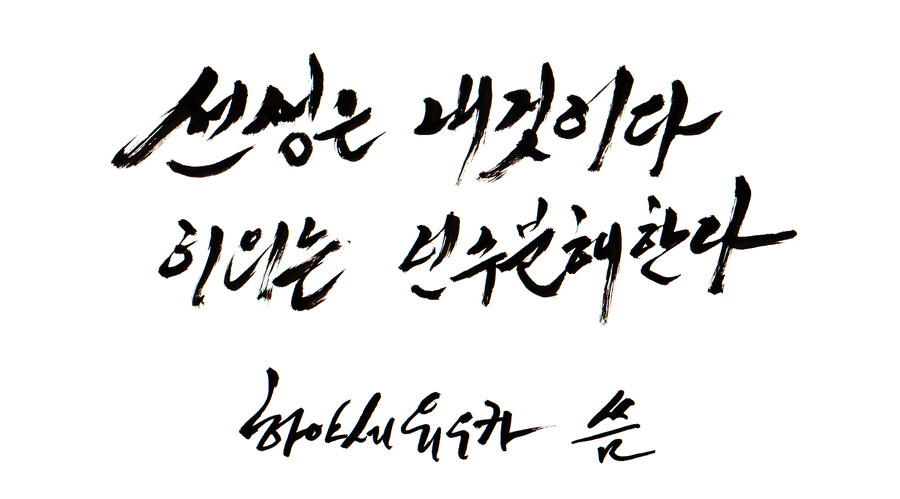 선생은 내것이다
이의는 인수분해한다
하야세 유우카 씀